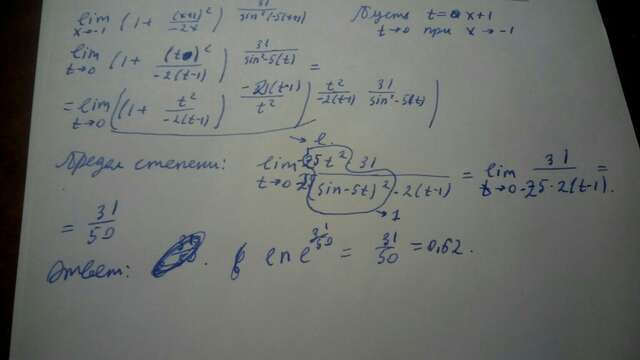 lim x→-1 (1 + (x+1)²/-2x) 31/sin²(-5(x+1)) Пусть t = x+1
lim t→0 (1 + (t)²/-2(t-1)) 31/sin²-5(t) = t→0 при x→-1
= lim t→0 ((1 + t²/-2(t-1)) -2(t-1)/t²) t²/-2(t-1) 31/sin²-5(t)
→ e.
Предел степени: lim t→0 25t² 31/25(sin-5t)²-2(t-1) = lim t→0 31/-25·2(t-1) =
→ 1
= 31/50
Ответ: ln e^31/50 = 31/50 = 0,62.